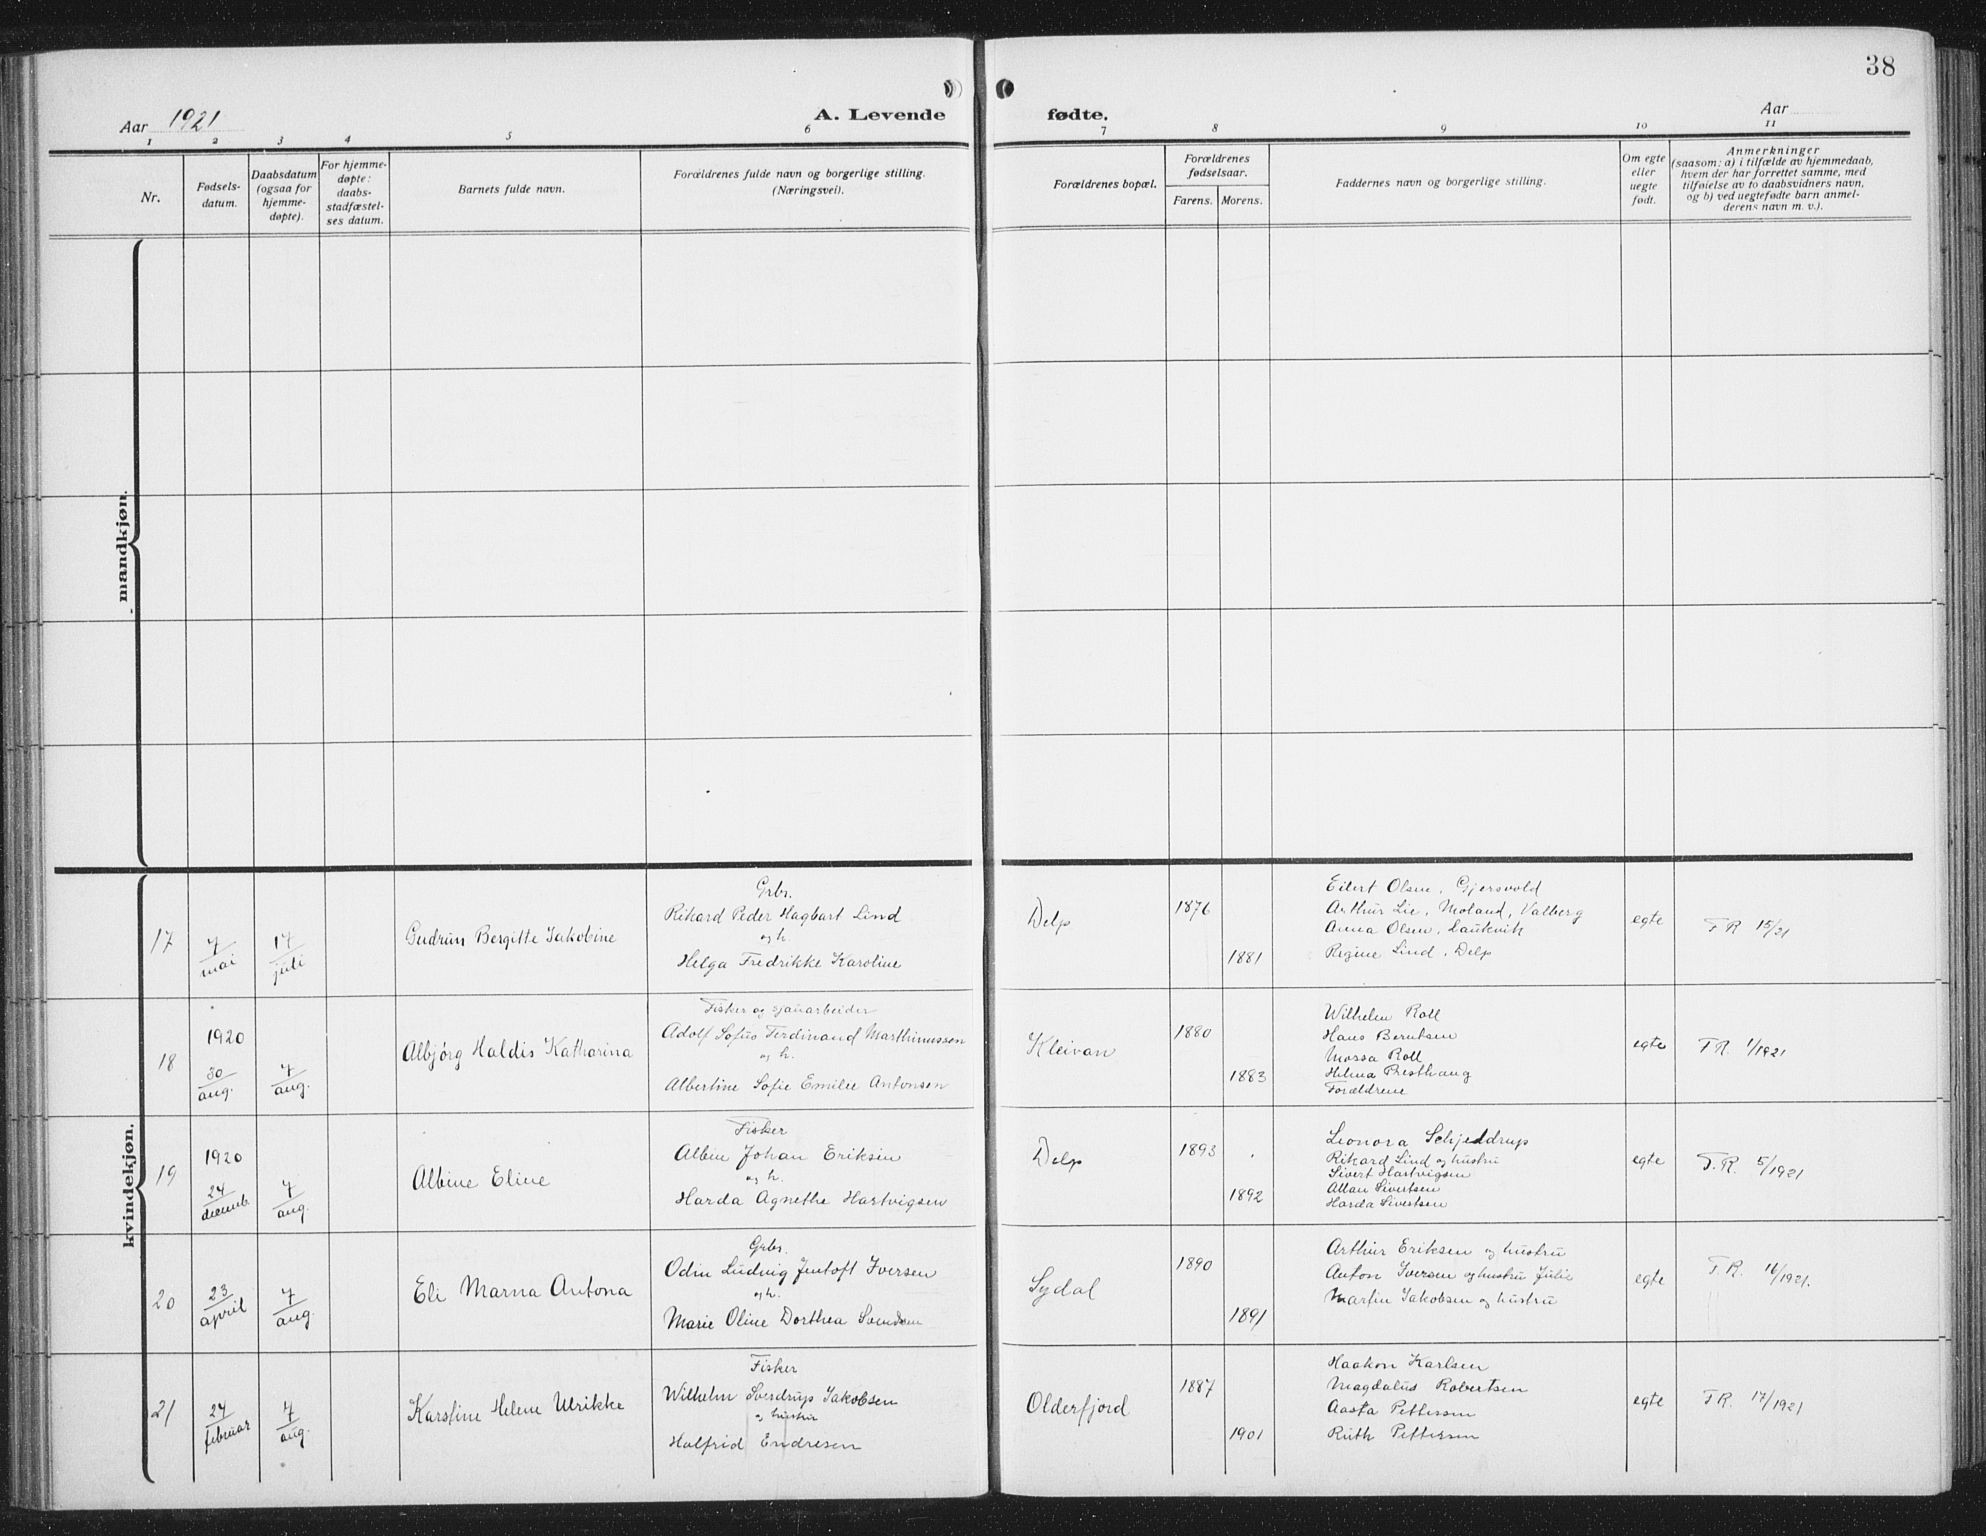 38
Aar 1921
A. Levende fødte.
Aar
1 2 3 4 5 6 7 8 9 10 11
Nr.
Fødsels-
datum.
Daabsdatum
(ogsaa for
hjemme-
døpte).
For hjemme-
døpte:
daabs-
stadfæstel-
ses datum.
Barnets fulde navn.
Forældrenes fulde navn og borgerlige stilling.
(Næringsvei).
Forældrenes bopæl.
Forældrenes
fødselsaar.
Farens. Morens.
Faddernes navn og borgerlige stilling.
Om egte
eller
uegte
født.
Anmerkninger
(saasom: a) i tilfælde av hjemmedaab,
hvem der har forrettet samme, med
tilføielse av to daabsvidners navn,
og b) ved uegtefødte barn anmel-
derens navn m. v.).
mandkjøn.
kvindekjøn.
17
7/mai
17/juli
Gudrun Bergitte Jakobine
Grbr.
Rikard Peder Hagbart Lind
og h.
Helga Fredrikke Karoline
Delp
1876
1881
Eilert Olsen, Gjersvold
Arthur Lie, Moland, Valberg
Anna Olsen, Laukvik
Regine Lind, Delp
egte
F.R 15/21
18
1920
30/aug.
7/aug.
Albjórg Haldis Katharina
Fisker og sjauarbeider
Adolf Sofus Ferdinand Marthinussen
og h.
Albertine Sofie Emilie Antonsen
Kleivan
1880
1883
Wilhelm Roll
Hans Berntsen
Morsa Roll
Helma Presthaug
Forældrene
egte
F.R. 1/1921
19
1920
24/decemb.
7/aug.
Albine Eline
Fisker
Albin Johan Eriksen
og h.
Harda Agnethe Hartvigsen
Delp
1893
1892
Leonora Schjeldrup
Rikard Lind og hustru
Sivert Hartvigsen
Allan Sivertsen
Harda Sivertsen
egte
F.R. 5/1921
20
23/april
7/aug.
Eli Marna Antona
Grbr.
Odin Ludvig Jentoft Iversen
og h.
Marie Oline Dorthea Svendsen
Sydal
1890
1891
Arthur Eriksen og hustru
Anton Iversen og hustru Julie
Martin Jakobsen og hustru
egte
F.R. 16/1921.
21
24/februar
7/aug.
Karstine Helene Ulrikke
Fisker
Wilhelm Sverdrup Jakobsen
og hustru
Halfrid Endresen
Olderfjord
1887
1901
Haakon Karlsen
Magdalus Robertsen
Aasta Pettersen
Ruth Pettersen
egte
F.R. 17/1921